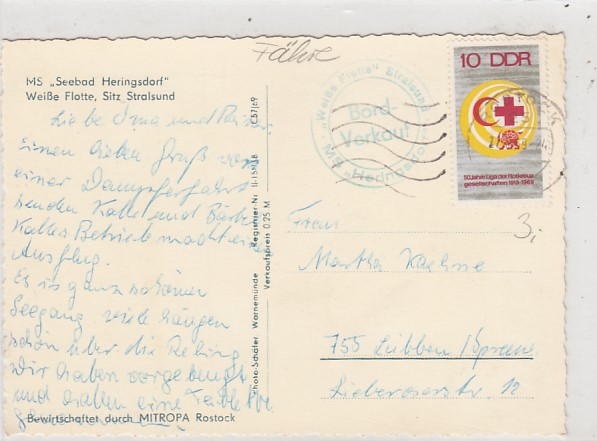 Fähre
MS „Seebad Heringsdorf"
Weiße Flotte, Sitz Stralsund
Liebe Oma und
Einen lieben Gruß von
einer Dampferfahrt
senden Kalle und Bärbel
Kalles Betrieb macht ein
Ausflug.
Es is ganz schöner
Seegang viele hängen
schon über die Reling
Wir haben vorgebeugt
und haben eine
Bewirtschaftet durch MITROPA Rostock
Photo-Schäfer Warnemünde Registrier-Nr. II-15
Verkaufspreis 0.25 M
"Weiße Flotte" Stralsund
Bord-
Verkauf
MS
10 DDR
50 Jahre Liga der Rotkreuz-
gesellschaften 1919-1969
3,-
Frau
Martha
755 Lübben/Spreew.
Lieberoserstr. 12